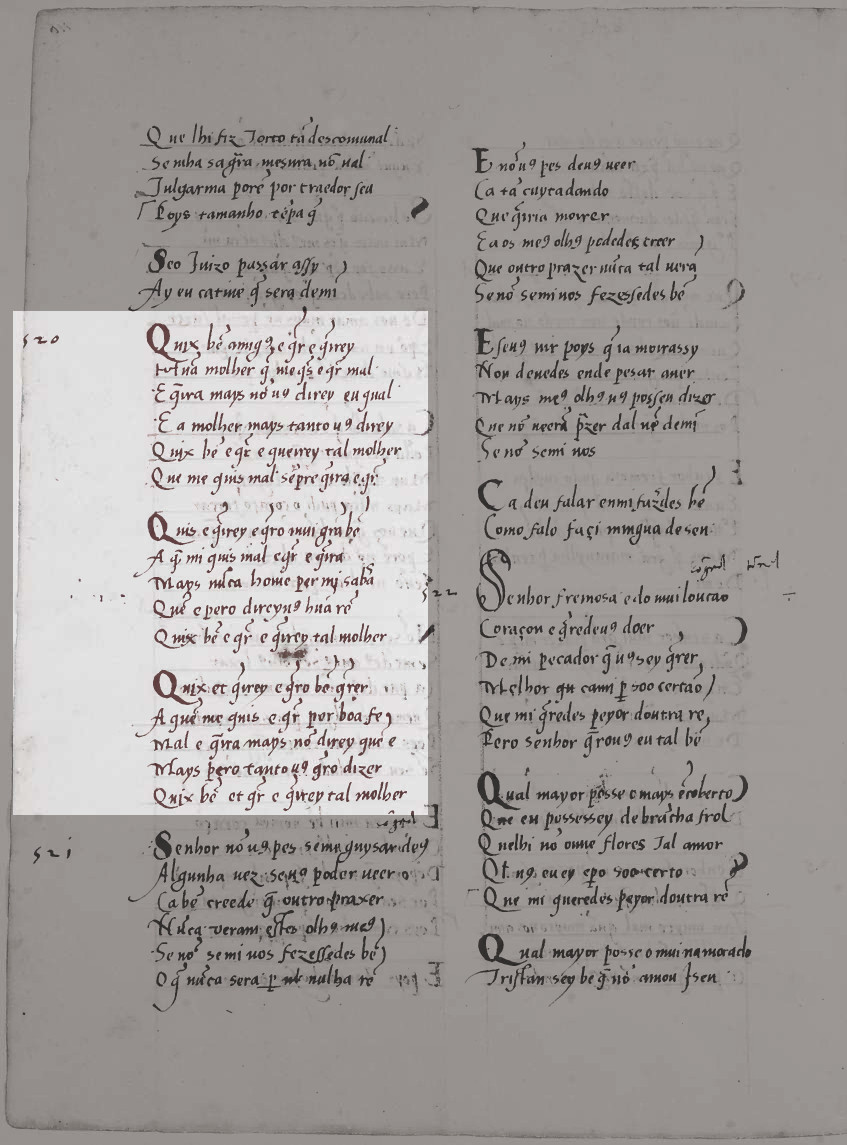 Que lhi fiz Torto tã descomunal
Se mha sa g̃ra mesura nõ ual
Julgarma porẽ por traedor seu
Poys tamanho tẽpa q̃
Seo Juizo passar assy
Ay eu catiue q̃ sera demi
520
Quix bẽ amigꝯ e q̃r e q̃irey
Hũa molher q̃ me q̃s e q̃r mal
E q̃rra mays nõ uꝯ direy eu qual
E a molher mays tanto uꝯ direy
Quix bẽ e q̃r e queirey tal molher
Que me quis mal sẽpre q̃rra e q̃r
Quis e q̃irey e q̃ro mui grã bẽ
A q̃ mi quis mal e q̃r e q̃rra
Mays nũca home per mj sabã
Quẽ e pero direyuꝯ hũa rẽ
Quix bẽ e q̃r e q̃irey tal molher
Quix et q̃irey e q̃ro bẽ q̃rer
A quẽ me quis e q̃r por boa fe
Mal e q̃rra mays nõ direy que e
Mays pero tanto uꝯ q̃ro dizer
Quix bẽ et q̃r e q̃irey tal molher
521
Senhor nõ uꝯ pes semeguysar deꝯ
Algunha vez seuꝯ poder ueer
Ca bẽ creede q̃ outro prazer
Nũca veram estes olhꝯ meꝯ
Se nõ se mi uos fezessedes bẽ
O q̃ nũca sera per nulha rẽ
E nõ uꝯ pes deuꝯ ueer
Ca tã cuytadando
Que q̃rria morrer
E aos meꝯ olhꝯ podedes creer
Que outro prazer nũca tal uera
Se nõ se mi uos fezessedes bẽ
E seuꝯ uir poys q̃ ia moirassy
Non deuedes ende pesar auer
Mays meꝯ olhꝯ uꝯ posseu dizer
Que nõ ueerã p̃zer dal nẽ demi
Se nõ semi uos
Ca deu falar enmi fazdes bẽ
Como falo faç i mingua desen
522
Senhor fremosa e do mui loução
Coraçon e q̃redeuꝯ doer
De mi pecador q̃ uꝯ sey q̃rer
Melhor qu cami p̱ soo certão
Que mi q̃redes peyor doutra rẽ
Pero senhor q̃rouꝯ eu tal bẽ
Qual mayor posse o mays ẽcoberto
Que eu possessey de brãcha frol
Quelhi nõ ouue flores Tal amor
Qt uꝯ eu ey epo soo certo
Que mi queredes peyor doutra rẽ
Qual mayor posse o mui namorado
Tristan sey bẽ q̃ nõ amou Jseu